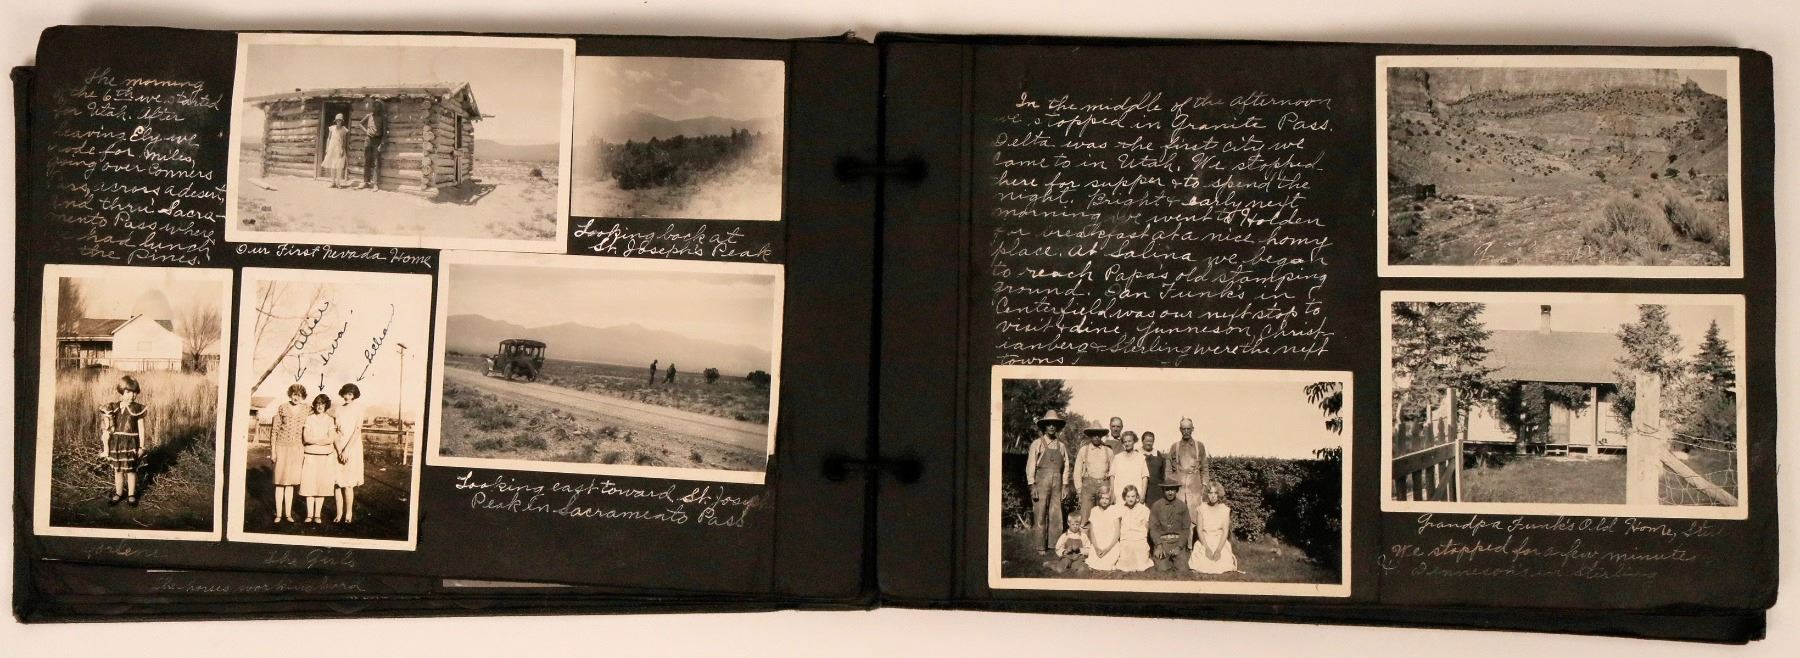 The morning
of the 6th we started
for Utah. After
leaving Ely we
rode for miles,
going over Conners
Pass, across a desert,
and thru Sacra-
mento Pass where
had lunch
the Pines.
Our First Nevada Home
Looking back at
St. Joseph's Peak
Allie
Arva
Richea
Looking east toward St. Joseph
Peak in Sacramento Pass
The Girls
the horses working hard
In the middle of the afternoon
we stopped in Granite Pass.
Delta was the first city we
came to in Utah. We stopped
here for supper & to spend the
night. Bright & early next
morning we went to Holden
for breakfast at a nice homy
place. At Salina we began
to reach Papa's old stamping
ground. Dan Funk's in
Centerfield was our next stop to
visit & dine, Gunneson, Christ-
ianberg & Sterling were the next
towns.
Grandpa Funk's Old Home,
We stopped for a few minutes
in Sterling